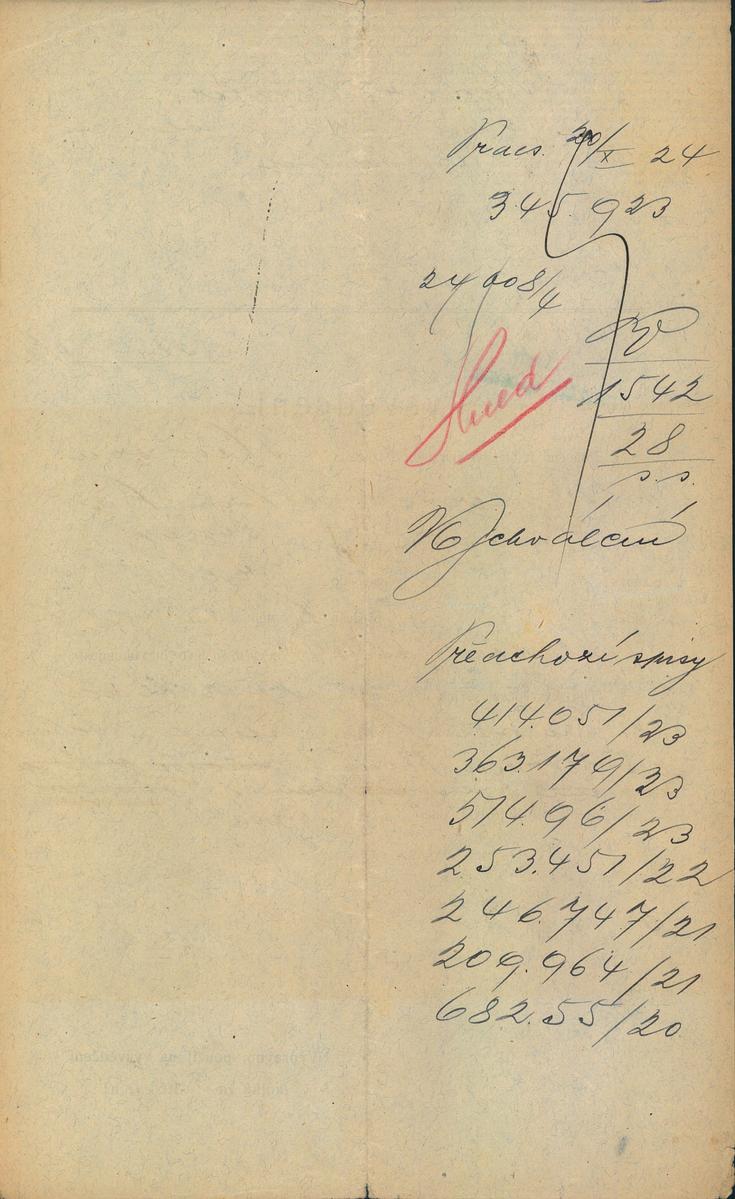 Pracs. 20/X 24
345 923
24 008/4
Hned
1542
28
s.s.
Vychválení
Předchozí spisy
414.051/23
363.179/23
514.96/23
253.451/22
246.747/21
209.964/21
682.55/20